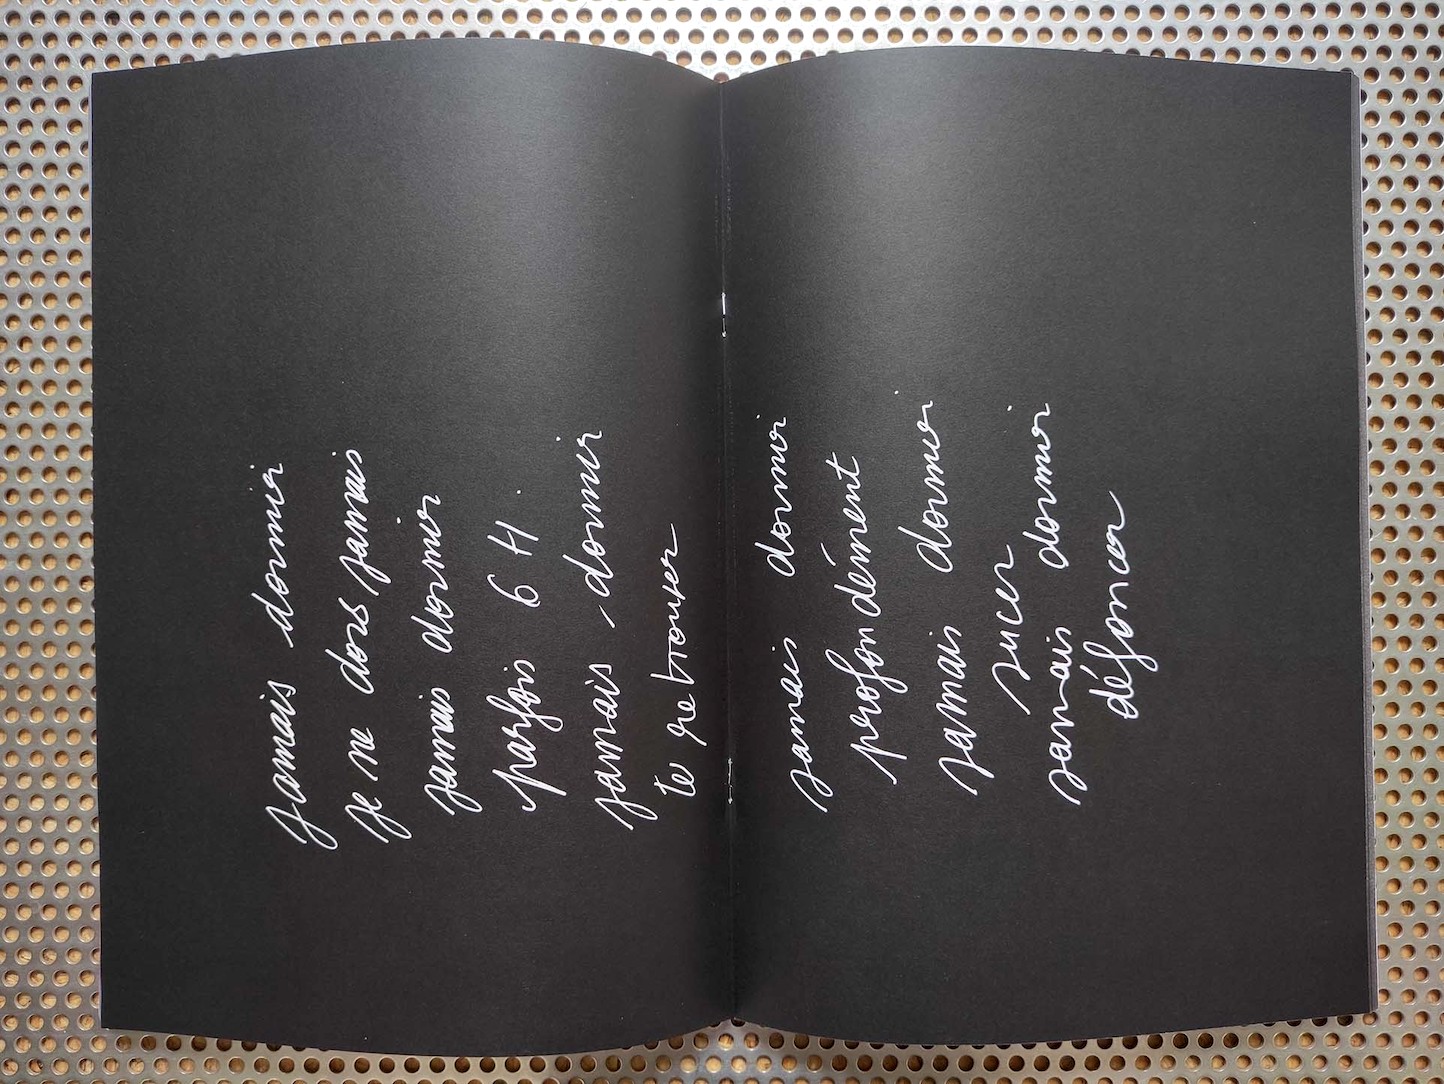 jamais dormir
je ne dors jamais
jamais dormir
parfois 6 H.
jamais dormir
te retrouver
jamais dormir
profondément
jamais dormir
sucer
jamais dormir
défoncer